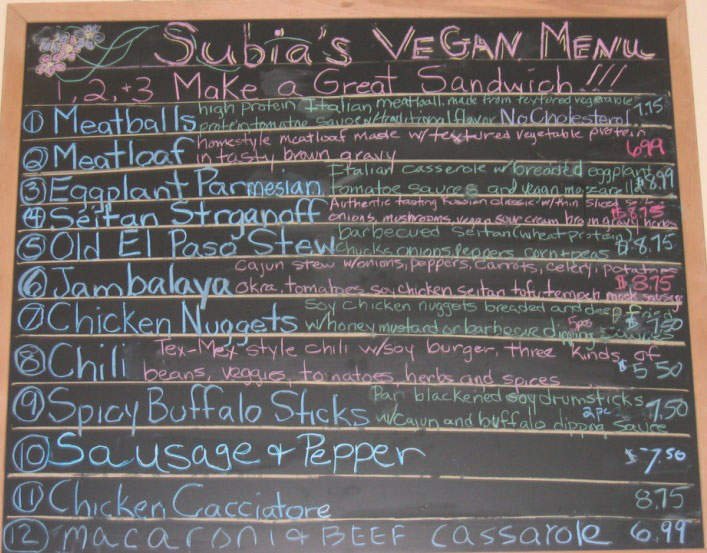 Subia's VEGAN MENU
1, 2, + 3 Make a Great Sandwich!!!
① Meatballs high protein Italian meatball, made from textured vegetable
protein tomatoe sauce w/traditional flavor No Cholesterol 7.75
② Meatloaf homestyle meatloaf made w/ textured vegetable protein
in tasty brown gravy 6.99
③ Eggplant Parmesian Italian casserole w/breaded eggplant
tomatoe sauce and vegan mozzarella $8.99
④ Seitan Strganoff Authentic tasting Russian classic w/thin sliced
onions, mushrooms, vegan sour cream brown gravy herbs $8.75
⑤ Old El Paso Stew barbecued seitan (wheat protein)
chucks, onions, peppers, corn + peas $8.75
⑥ Jambalaya Cajun stew w/onions, peppers, carrots, celery, potatoes
okra, tomatoes, soy chicken seitan tofu tempeh mock sausage $8.75
⑦ Chicken Nuggets soy chicken nuggets breaded and deep fried
w/honey mustard or barbecue dipping sauces 5pcs $7.50
⑧ Chili Tex-Mex style chili w/soy burger, three kinds of
beans, veggies, tomatoes, herbs and spices $5.50
⑨ Spicy Buffalo Sticks Pan blackened soy drumsticks
w/Cajun and buffalo dipping sauce 2pc 7.50
⑩ Sausage + Pepper $7.50
⑪ Chicken Cacciatore 8.75
⑫ macaroni & BEEF casserole 6.99